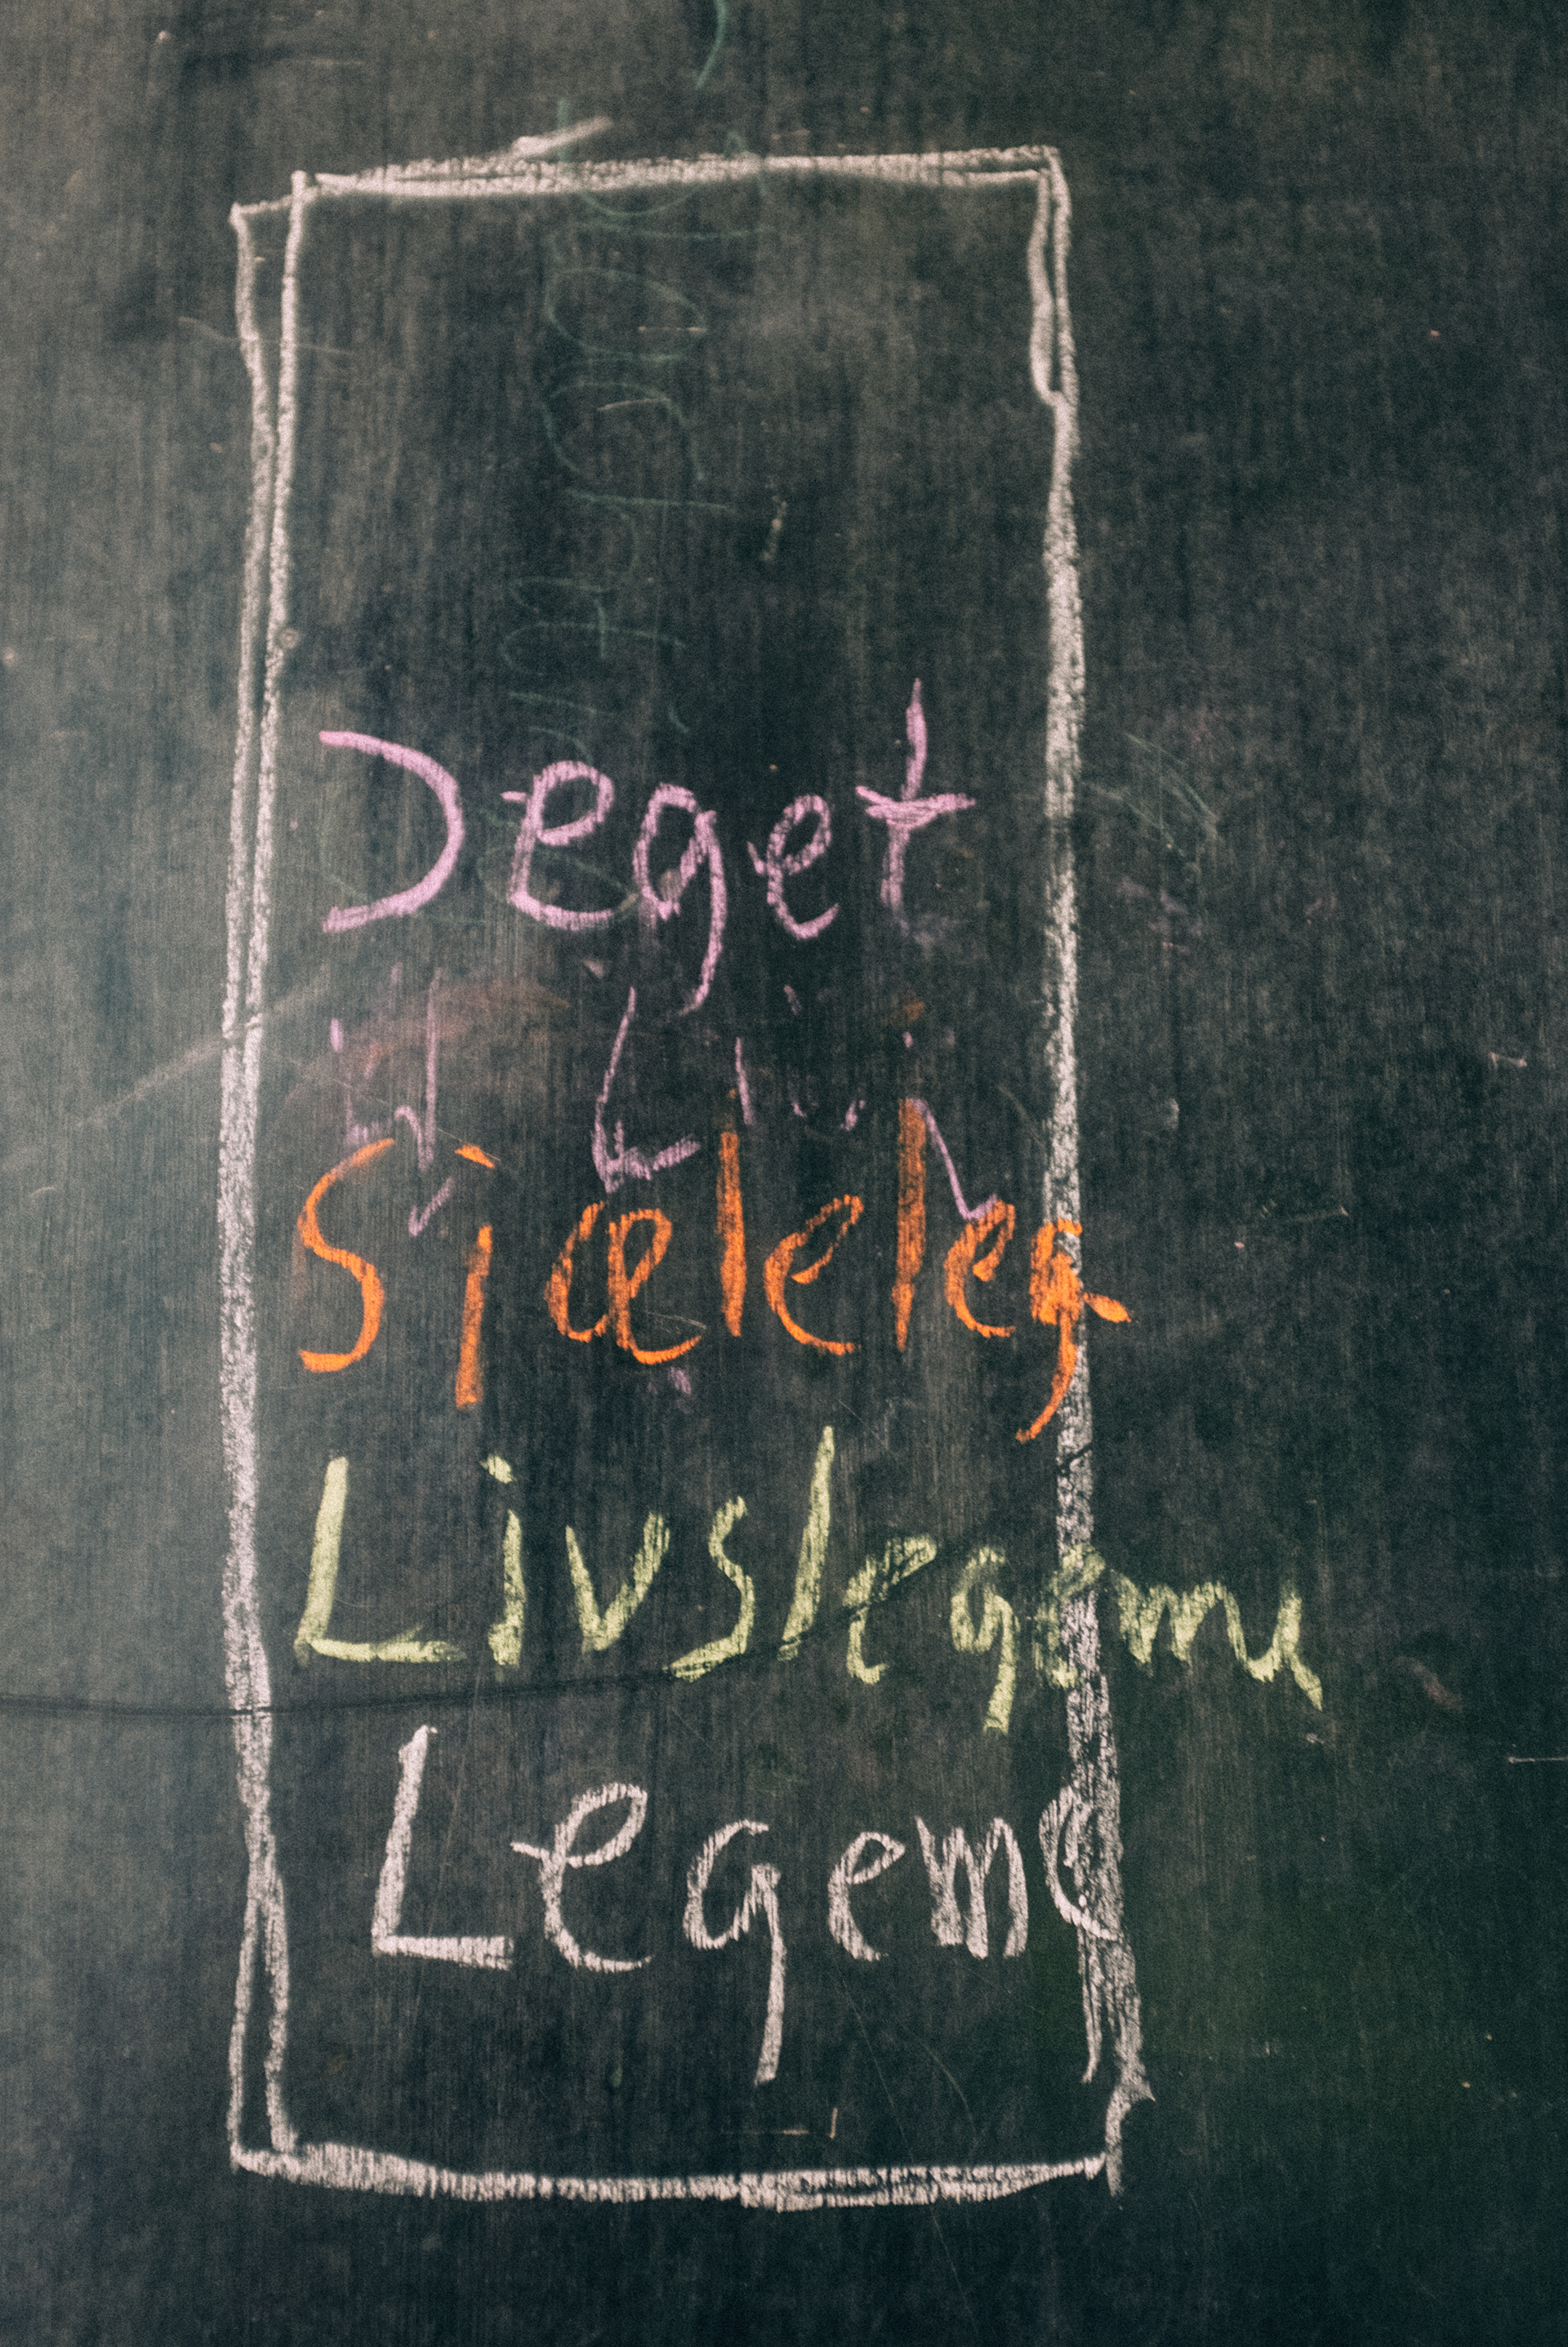 Jeget
Sjæleleg
Livslegeme
Legeme